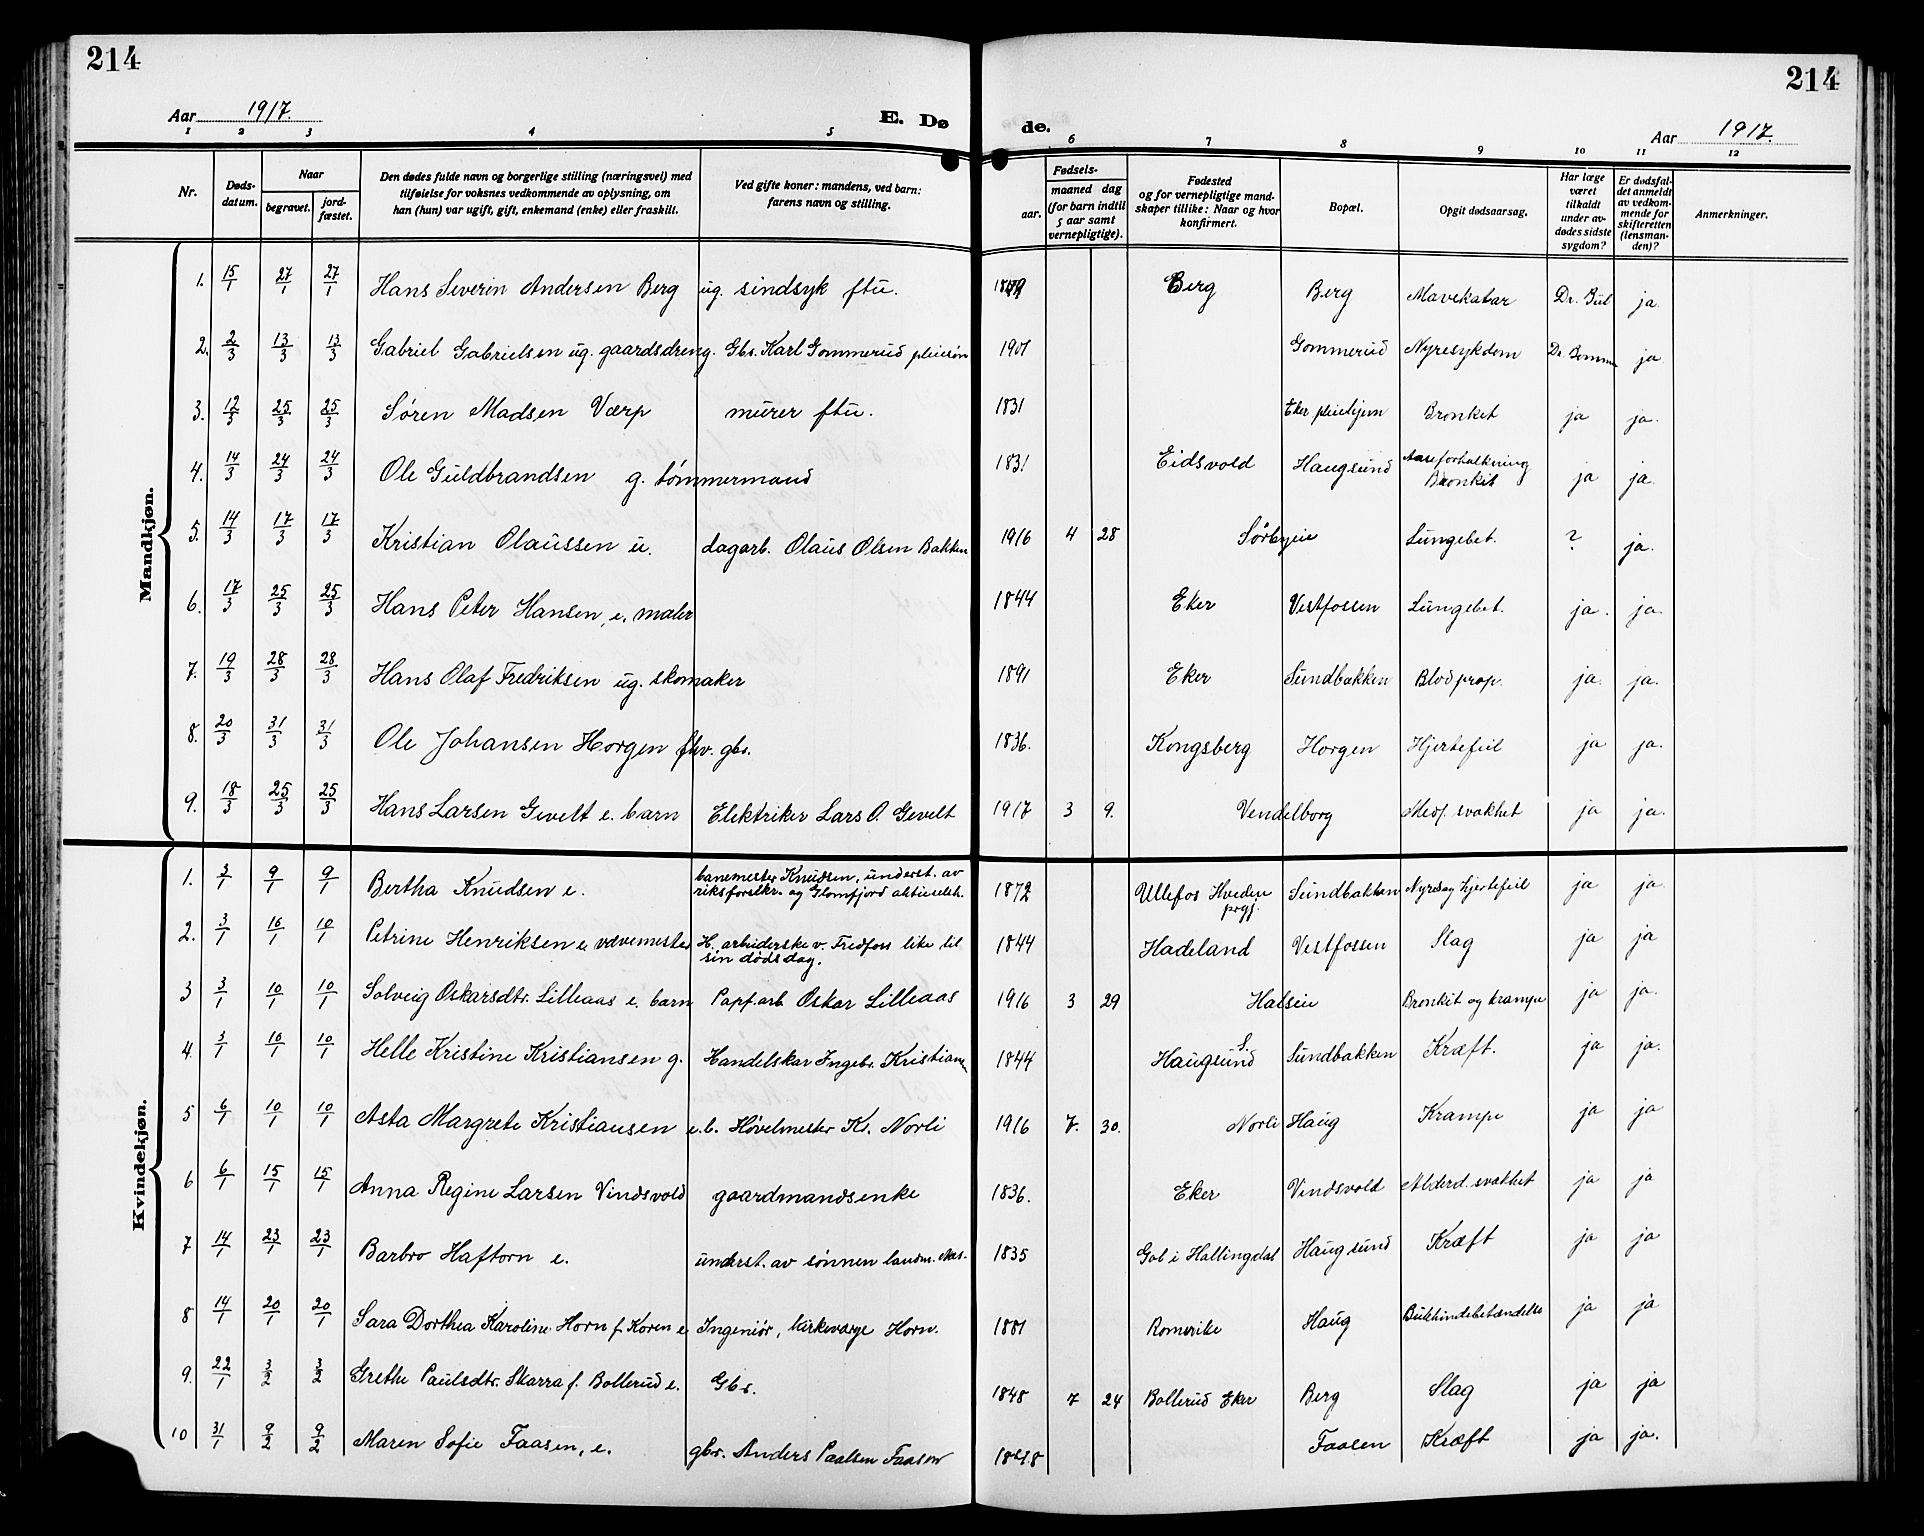 214
214
Aar 1917.
E. Dø
de.
Aar 1917.
1 2 3 4 5 6 7 8 9 10 11 12
Nr.
Døds-
datum.
Naar
begravet.
jord-
fæstet.
Den dødes fulde navn og borgerlige stilling (næringsvei) med
tilføielse for voksnes vedkommende av oplysning, om
han (hun) var ugift, gift, enkemand (enke) eller fraskilt.
Ved gifte koner: mandens, ved barn:
farens navn og stilling.
Fødsels-
aar.
maaned dag
(for barn indtil
5 aar samt
vernepligtige).
Fødested
og for vernepligtige mand-
skaper tillike: Naar og hvor
konfirmert.
Bopæl.
Opgit dødsaarsag.
Har læge
været
tilkaldt
under av-
dødes sidste
sygdom?
Er dødsfal-
det anmeldt
av vedkom-
mende for
skifteretten
(lensman-
den)?
Anmerkninger.
Mandkjøn.
1. 15/1 27/1 27/1 Hans Severin Andersen Berg ug. sindsyk ftu. Berg Berg Mavekatar Dr. Bul ja.
2. 2/3 13/3 13/3 Gabriel Gabrielsen ug. gaardsdreng. Gbr. Karl Gommerud pleiesøn 1901 Gommerud Nyresykdom Dr. ja.
3. 12/3 25/3 25/3 Søren Madsen Værp murer ftu. 1831 Eker pleiehjem Bronkit ja ja.
4. 14/3 24/3 24/3 Ole Guldbrandsen g. tømmermand 1831 Eidsvold Haugsund Aareforkalkning
Bronkit ja ja.
5. 14/3 17/3 17/3 Kristian Olaussen u. dagarb. Olaus Olsen Bakken 1916 4 28 Sørbyeie Lungebet. ? ja.
6. 17/3 25/3 25/3 Hans Peter Hansen, e. maler 1844 Eker Vestfossen Lungebet. ja. ja.
7. 19/3 28/3 28/3 Hans Olaf Fredriksen ug. skomaker 1891 Eker Sundbakken Blodprop. ja. ja.
8. 20/3 31/3 31/3 Ole Johansen Horgen fhv. gbr. 1836. Kongsberg Horgen Hjertefeil ja ja.
9. 18/3 25/3 25/3 Hans Larsen Gevelt e. barn Elektriker Lars O. Gevelt 1917 3 9. Vendelborg Medf. svakhet ja ja.
Kvindekjøn.
1. 3/1 9/1 9/1 Bertha Knudsen e. banemester Knudsen, underst. av
riksforsikr. og Glomfjord aktieselsk. 1872 Ullefos Hveden
prgj. Sundbakken Nyre og hjertefeil ja ja.
2. 3/1 10/1 10/1 Petrine Henriksen e. vævemester H. arbeiderske v. Fredfoss like til
sin dødsdag. 1844 Hadeland Vestfossen Slag ja ja
3 3/1 10/1 10/1 Solveig Oskarsdtr. Lilleaas e. barn Papf.arb. Oskar Lilleaas 1916 3 29 Halseie Bronkit og krampe ja ja.
4. 3/1 10/1 10/1 Helle Kristine Kristiansen g. Handelskar Ingebr. Kristiansen 1844 Haugsund S. Sundbakken Kræft. ja ja.
5 6/1 10/1 10/1 Asta Margrete Kristiansen e.b. Høvelmester Kr. Norli 1916 7. 30. Norli Haug Krampe ja ja
6 6/1 15/1 15/1 Anna Regine Larsen Vindsvold gaardmandsenke 1836. Eker Vindsvold Alderd. svakhet ja ja
7 14/1 23/1 23/1 Barbro Haftorn e. underst. av sønnen landm. 1835 Gol i Hallingdal Haugsund Kræft ja ja
8 14/1 20/1 20/1 Sara Dorthea Karoline Horn f. Koren e Ingeniør, kirkeværge Horn. 1881 Romerike Haug Bukhindebetændelse ja ja
9. 22/1 3/2 3/2 Grethe Paulsdtr. Skarra f. Bollerud e. Gbr. 1848 7 24 Bollerud Eker Berg Slag ja ja
10 31/1 9/2 9/2 Maren Sofie Faasen, e. gbr. Anders Paalsen Faasen 1848 Faasen Kræft ja ja.